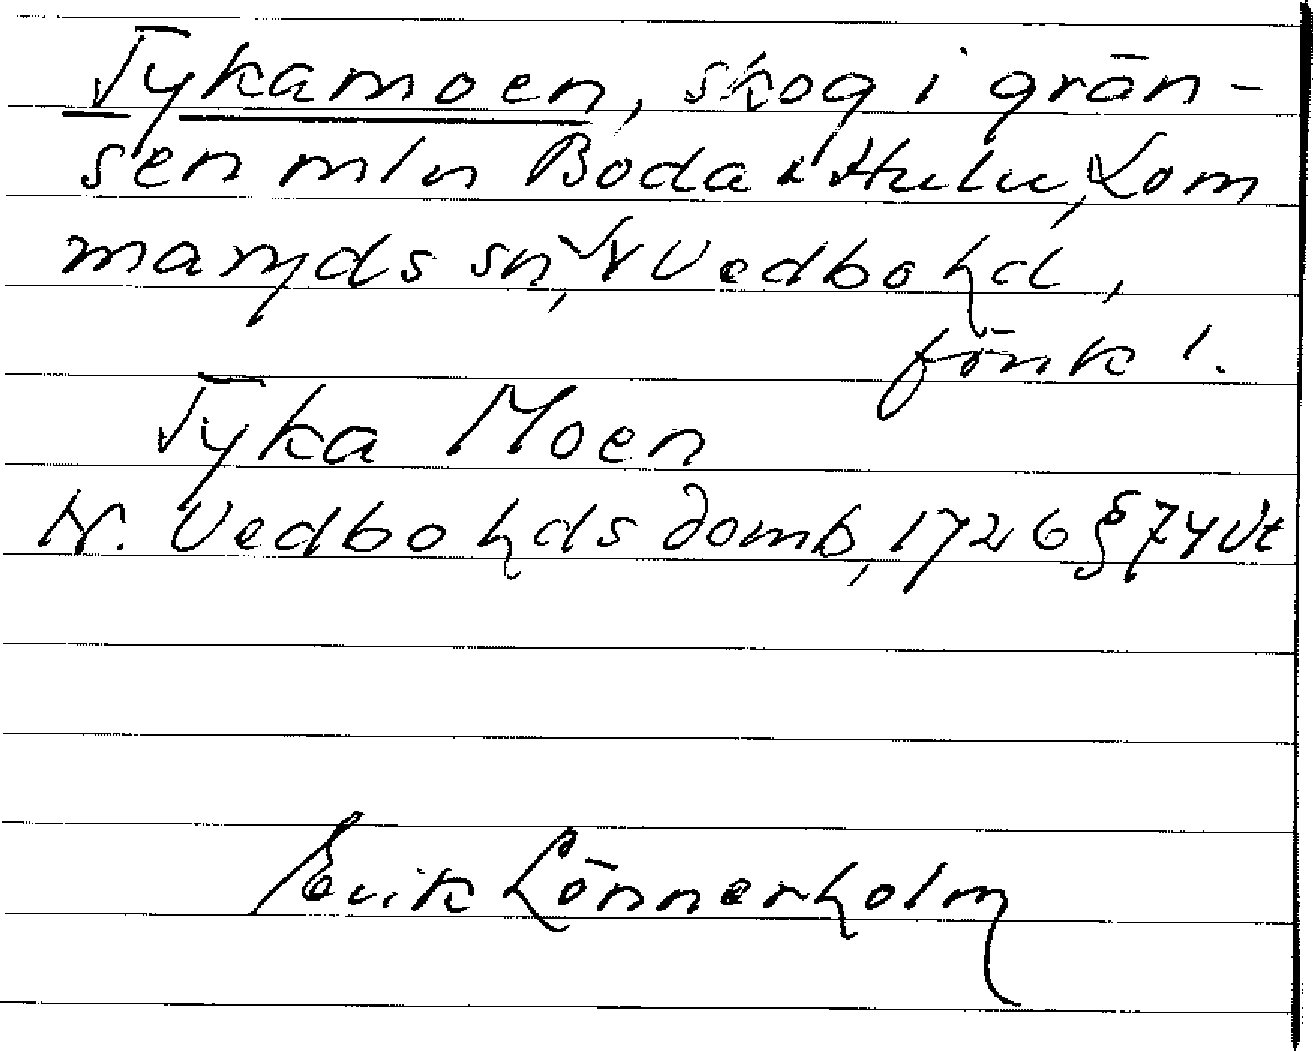 Tykamoen, skog i grän-
sen mln Boda & Hulu, Lom
maryds sn, N Vedbo hd,
förk!.
Tyka Moen
N. Vedbo hds domb, 1726 § 74 Vt
Erik Lönnerholm